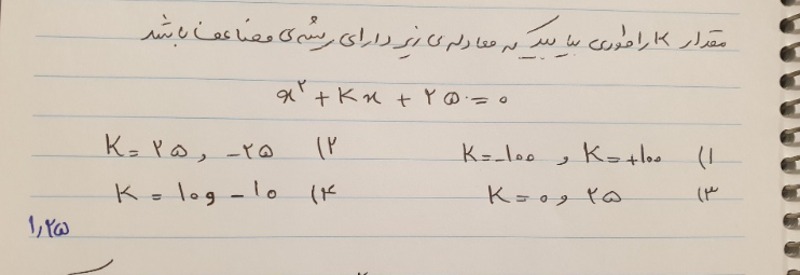 مقدار K را طوری بیابید که معادله‌ی زیر دارای ریشه‌ی مضاعف باشد
x² + Kx + ۲۵ = ۰
۱) K=-۱۰۰ و K=+۱۰۰ ۲) K=۲۵ و -۲۵
۳) K=۰ و ۲۵ ۴) K=۱۰ و -۱۰
۱,۲۵